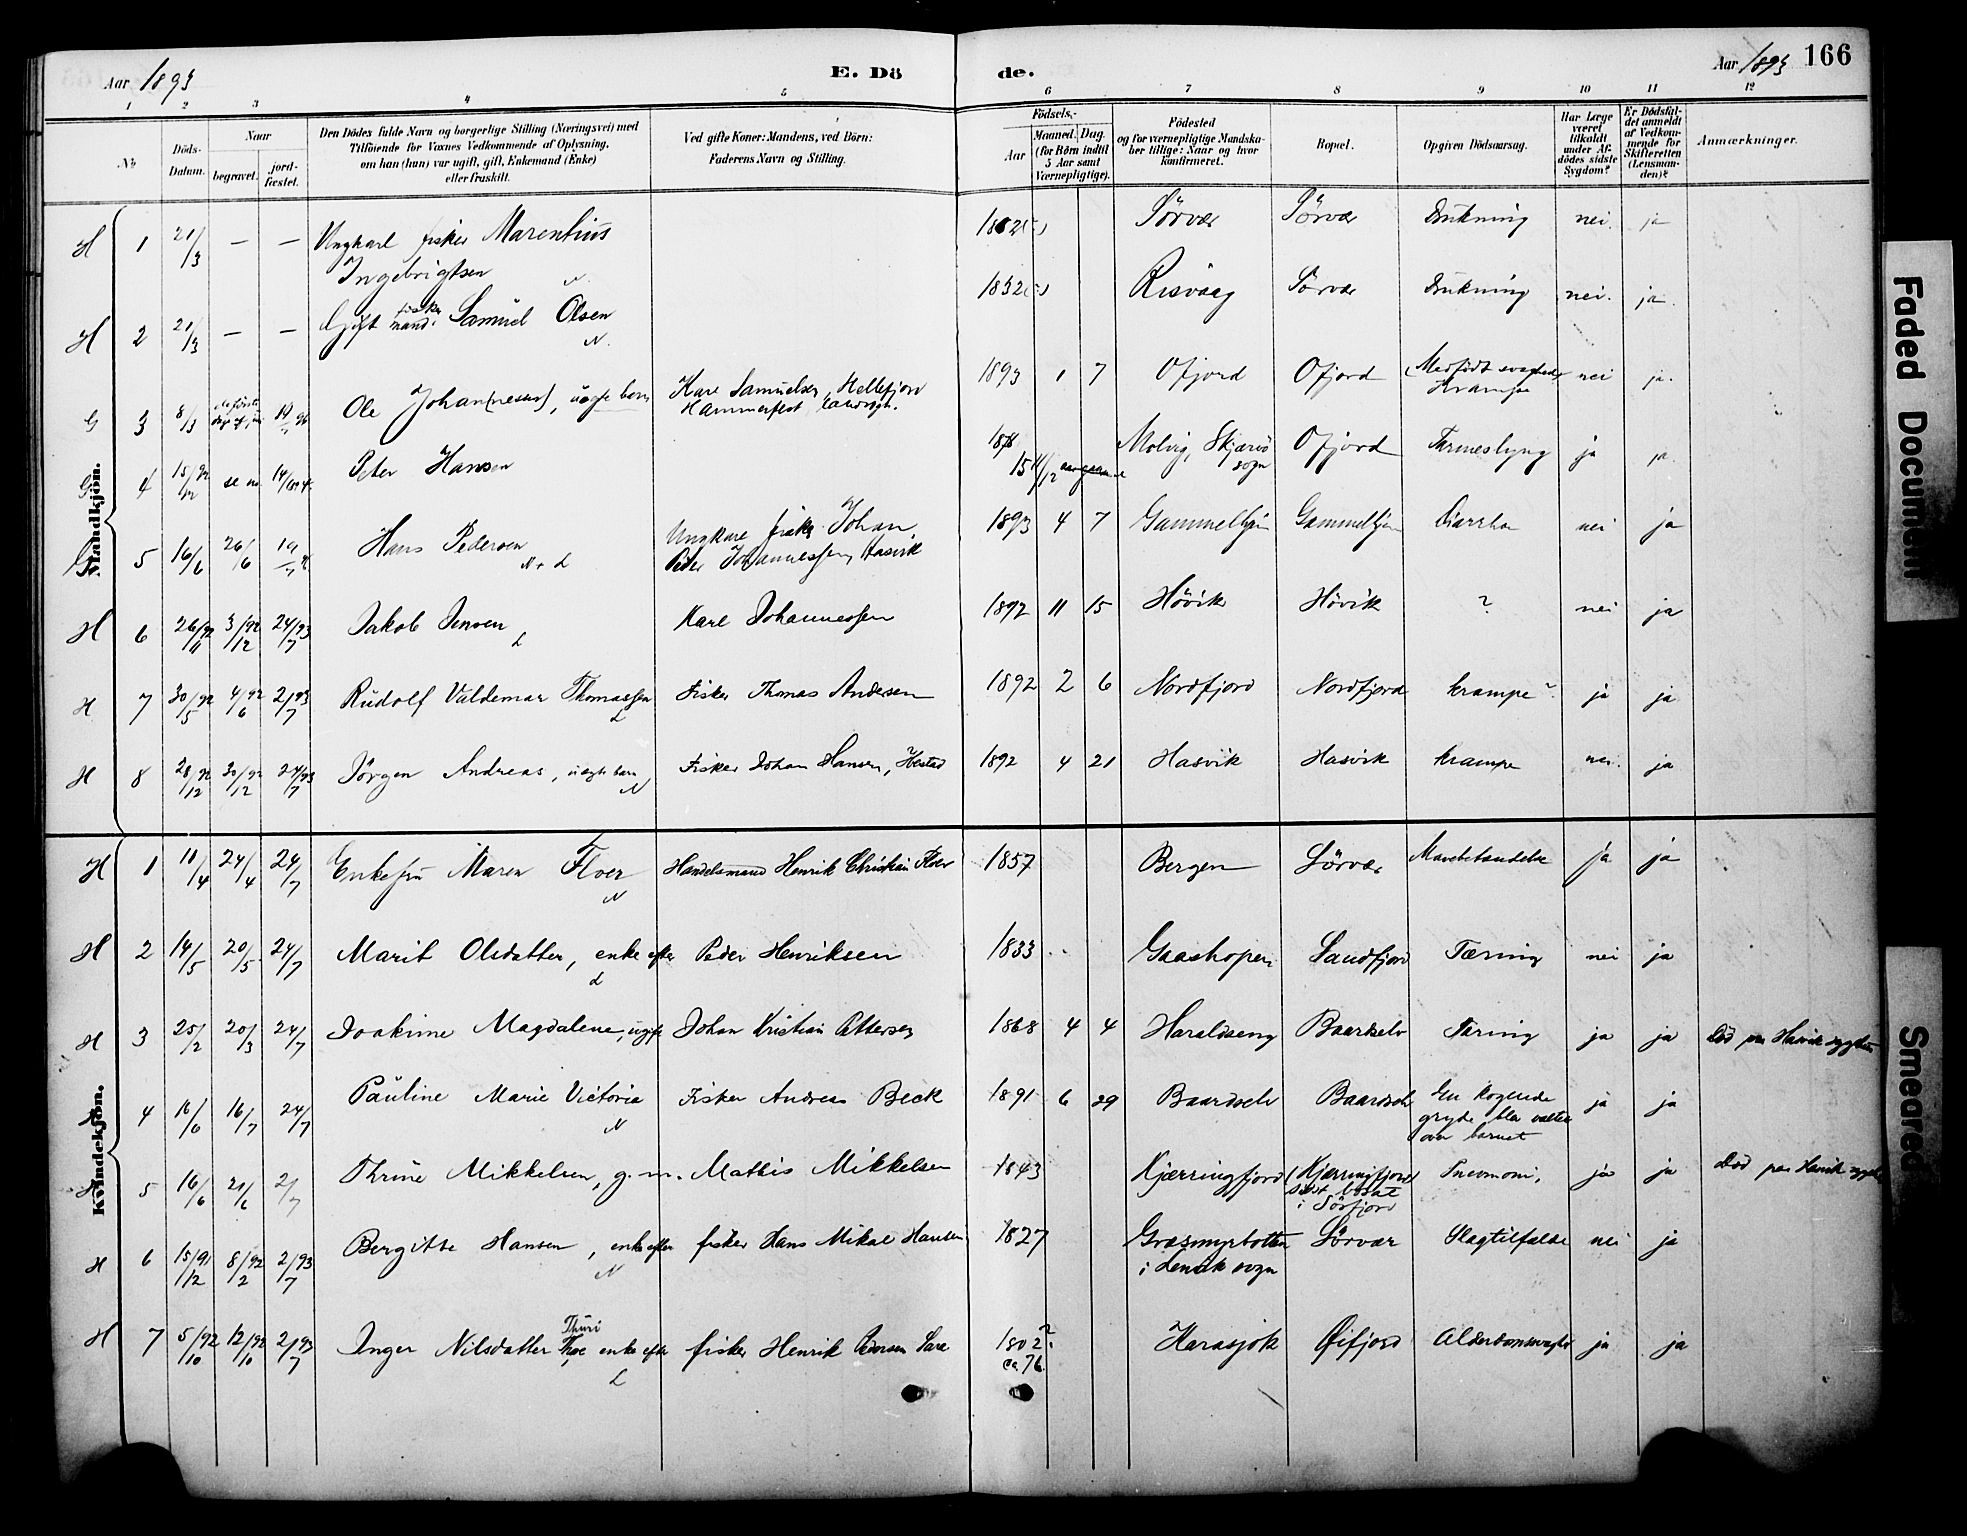 Aar 1893
E. Dö
de.
Aar 1893
166
1 2 3 4 5 6 7 8 9 10 11 12
No
Döds-Datum.
Naar
begravet.
jord-fæstet.
Den Dödes fulde Navn og borgerlige Stilling (Næringsvei) med
Tilföiende for Voxnes Vedkommende af Oplysning,
om han (hun) var ugift, gift, Enkemand (Enke)
eller fraskilt.
Ved gifte Koner: Mandens, ved Börn:
Faderens Navn og Stilling.
Födsels,-
Aar
Maaned. Dag.
(for Börn indtil
5 Aar samt
Værnepligtige).
Födested
og for værnepligtige Mandska-
ber tillige: Naar og hvor
konfirmeret.
Bopæl.
Opgiven Dödsaarsag.
Har Læge
været
tilkaldt
under Af-
dödes sidste
Sygdom?
Er Dödsfal-
det anmeldt
af Vedkom-
mende for
Skifteretten
(Lensman-
den)?
Anmærkninger.
Mandkjön.
H 1 21/3 — — Ungkarl fisker Marentius Sörvær Sörvær Drukning nei ja
Ingebrigtsen
H 2 21/3 — — Gift fisker Samuel Olsen 1832 Risvaag Sörvær Drukning nei. ja.
N.
G 3 8/3 Ole Johan(nesen), uægte barn Kare Samuelsen, Hellefjord 1893 1 7 Ofjord Ofjord Medfödt svaghed nei ja.
Hammerfest landsogn. Krampe
4 15/92 12 Peter Hansen Molvig, Skjærvö Ofjord Tarmeslyng ja ja.
sogn
5 16/6 26/6 Hans Pedersen Ungkarl fisker Johan 1893 4 7 Diarrhe nei ja
N + L Peder Johannessen, Hasvik
H 6 26/92 11 3/92 12 24/93 7 Jakob Jensen Karl Johannessen 1892 11 15 Hövik Hövik ? nei ja
L
H 7 30/92 5 4/92 6 2/93 7 Rudolf Valdemar Thomassen Fisker Thomas Andersen 1892 2 6 Nordfjord Nordfjord krampe? ja ja
L
H 8 28/92 12 30/92 12 24/93 7 Jörgen Andreas, uægte barn Fisker Johan Hansen, 1892 4 21 Hasvik Hasvik krampe nei. ja
N
Kvindekjön.
H 1 11/4 24/4 24/7 Enkefru Maren Floer Handelsmand Henrik Christian Floer 1857 Bergen Sörvær ja ja
N
H 2 14/5 20/5 24/7 Marit Olsdatter, enke efter Peder Henriksen 1833 Gaashopen Sandfjord Tæring nei ja
L
H 3 25/2 20/3 24/7 Joakime Magdalene, ugift Johan Kristian Pettersen 1868 4 4 Haraldseng Baardselv Tæring ja ja Död paa Hasvik sygehus
4 16/6 16/7 24/7 Pauline Marie Victoria Fisker Andreas Beck 1891 6 29 Baardselv Baardselv En kogende ja ja
N gryde blev væltet
over barnet
5 16/6 21/6 2/7 Thrine Mikkelsen, g. m. Mathis Mikkelsen 1843 Kjærringfjord Kjærringfjord Pneumoni, ja ja Död paa Hasvik sygehus
sidst bosat
i Sörfjord
H 6 15/91 12 8/92 2 2/93 7 Bergitte Hansen, enke efter fisker Hans Mikal Hansen 1827 Græsmyrbotten Sörvær Slagtilfælde nei ja
N i Lenvik sogn
H 7 5/92 10 12/92 10 2/93 7 Inger Nilsdatter Thuri enke efter fisker Henrik Pedersen Sara 1802? Karasjok Öifjord Alderdomssvaghed ja ja
L ca 76
Faded Document
Smeared